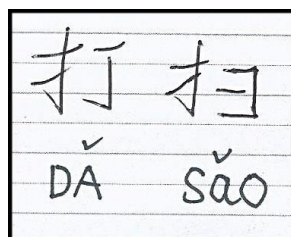 打 扫
DǍ sǎo